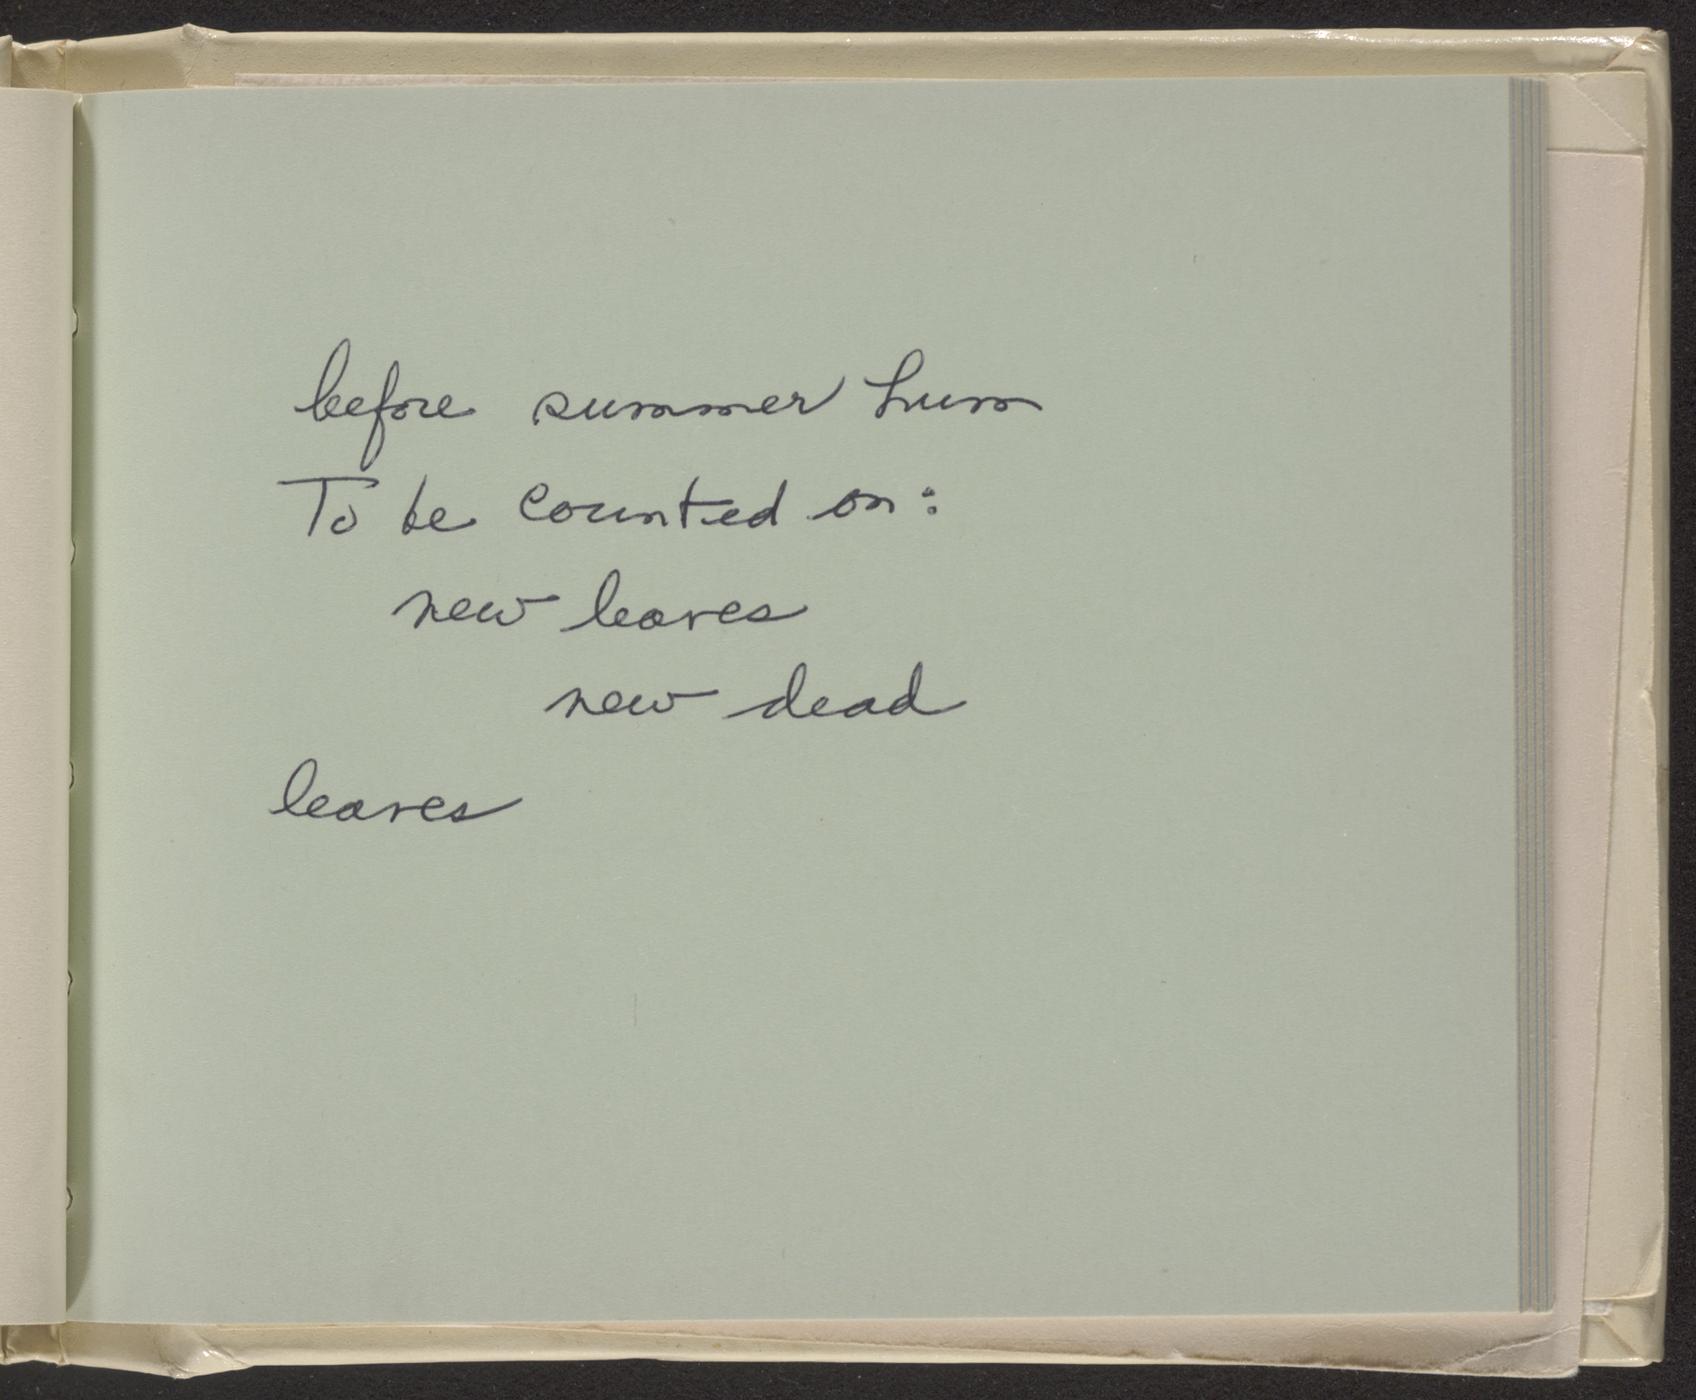 before summer hum
To be counted on:
new leaves
new dead
leaves